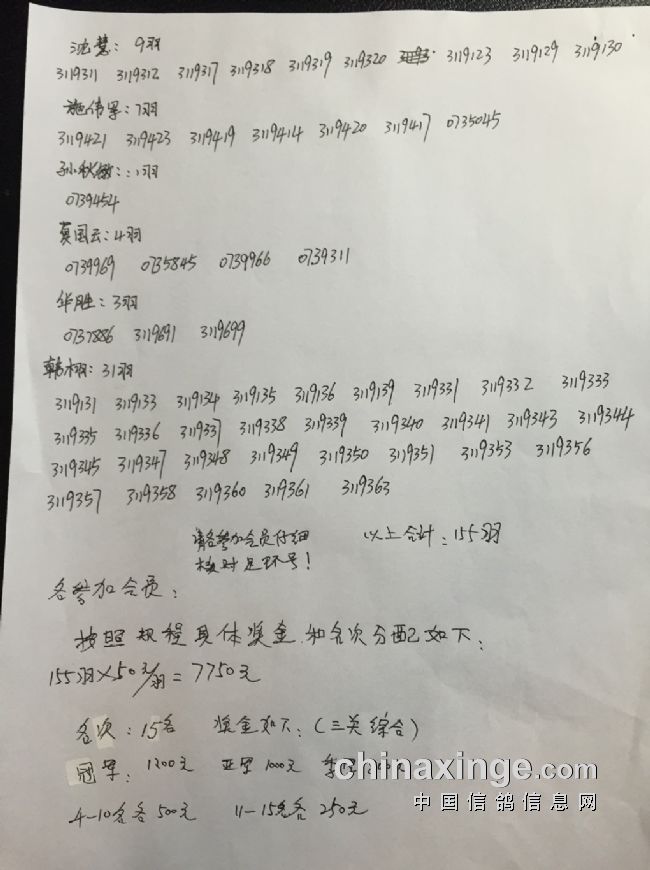 沈慧：9羽
3119311 3119312 3119317 3119318 3119319 3119320 3119123 3119129 3119130
施伟军：7羽
3119421 3119423 3119419 3119414 3119420 3119417 0735045
孙秋：1羽
0739454
莫国云：4羽
0739969 0735845 0739966 0739311
华胜：3羽
0737886 3119691 3119699
韩栩：31羽
3119131 3119133 3119134 3119135 3119136 3119139 3119331 3119332 3119333
3119335 3119336 3119337 3119338 3119339 3119340 3119341 3119343 3119344
3119345 3119347 3119348 3119349 3119350 3119351 3119353 3119356
3119357 3119358 3119360 3119361 3119363
请各参加会员仔细 以上合计：155羽
核对足环号！
各参加会员：
按照规程具体奖金和名次分配如下：
155羽×50元/羽=7750元
名次：15名 奖金如下：（三关综合）
冠军：1200元 亚军1000元 季军
chinaxinge.com
中国信鸽信息网
4-10名各500元 11-15名各250元